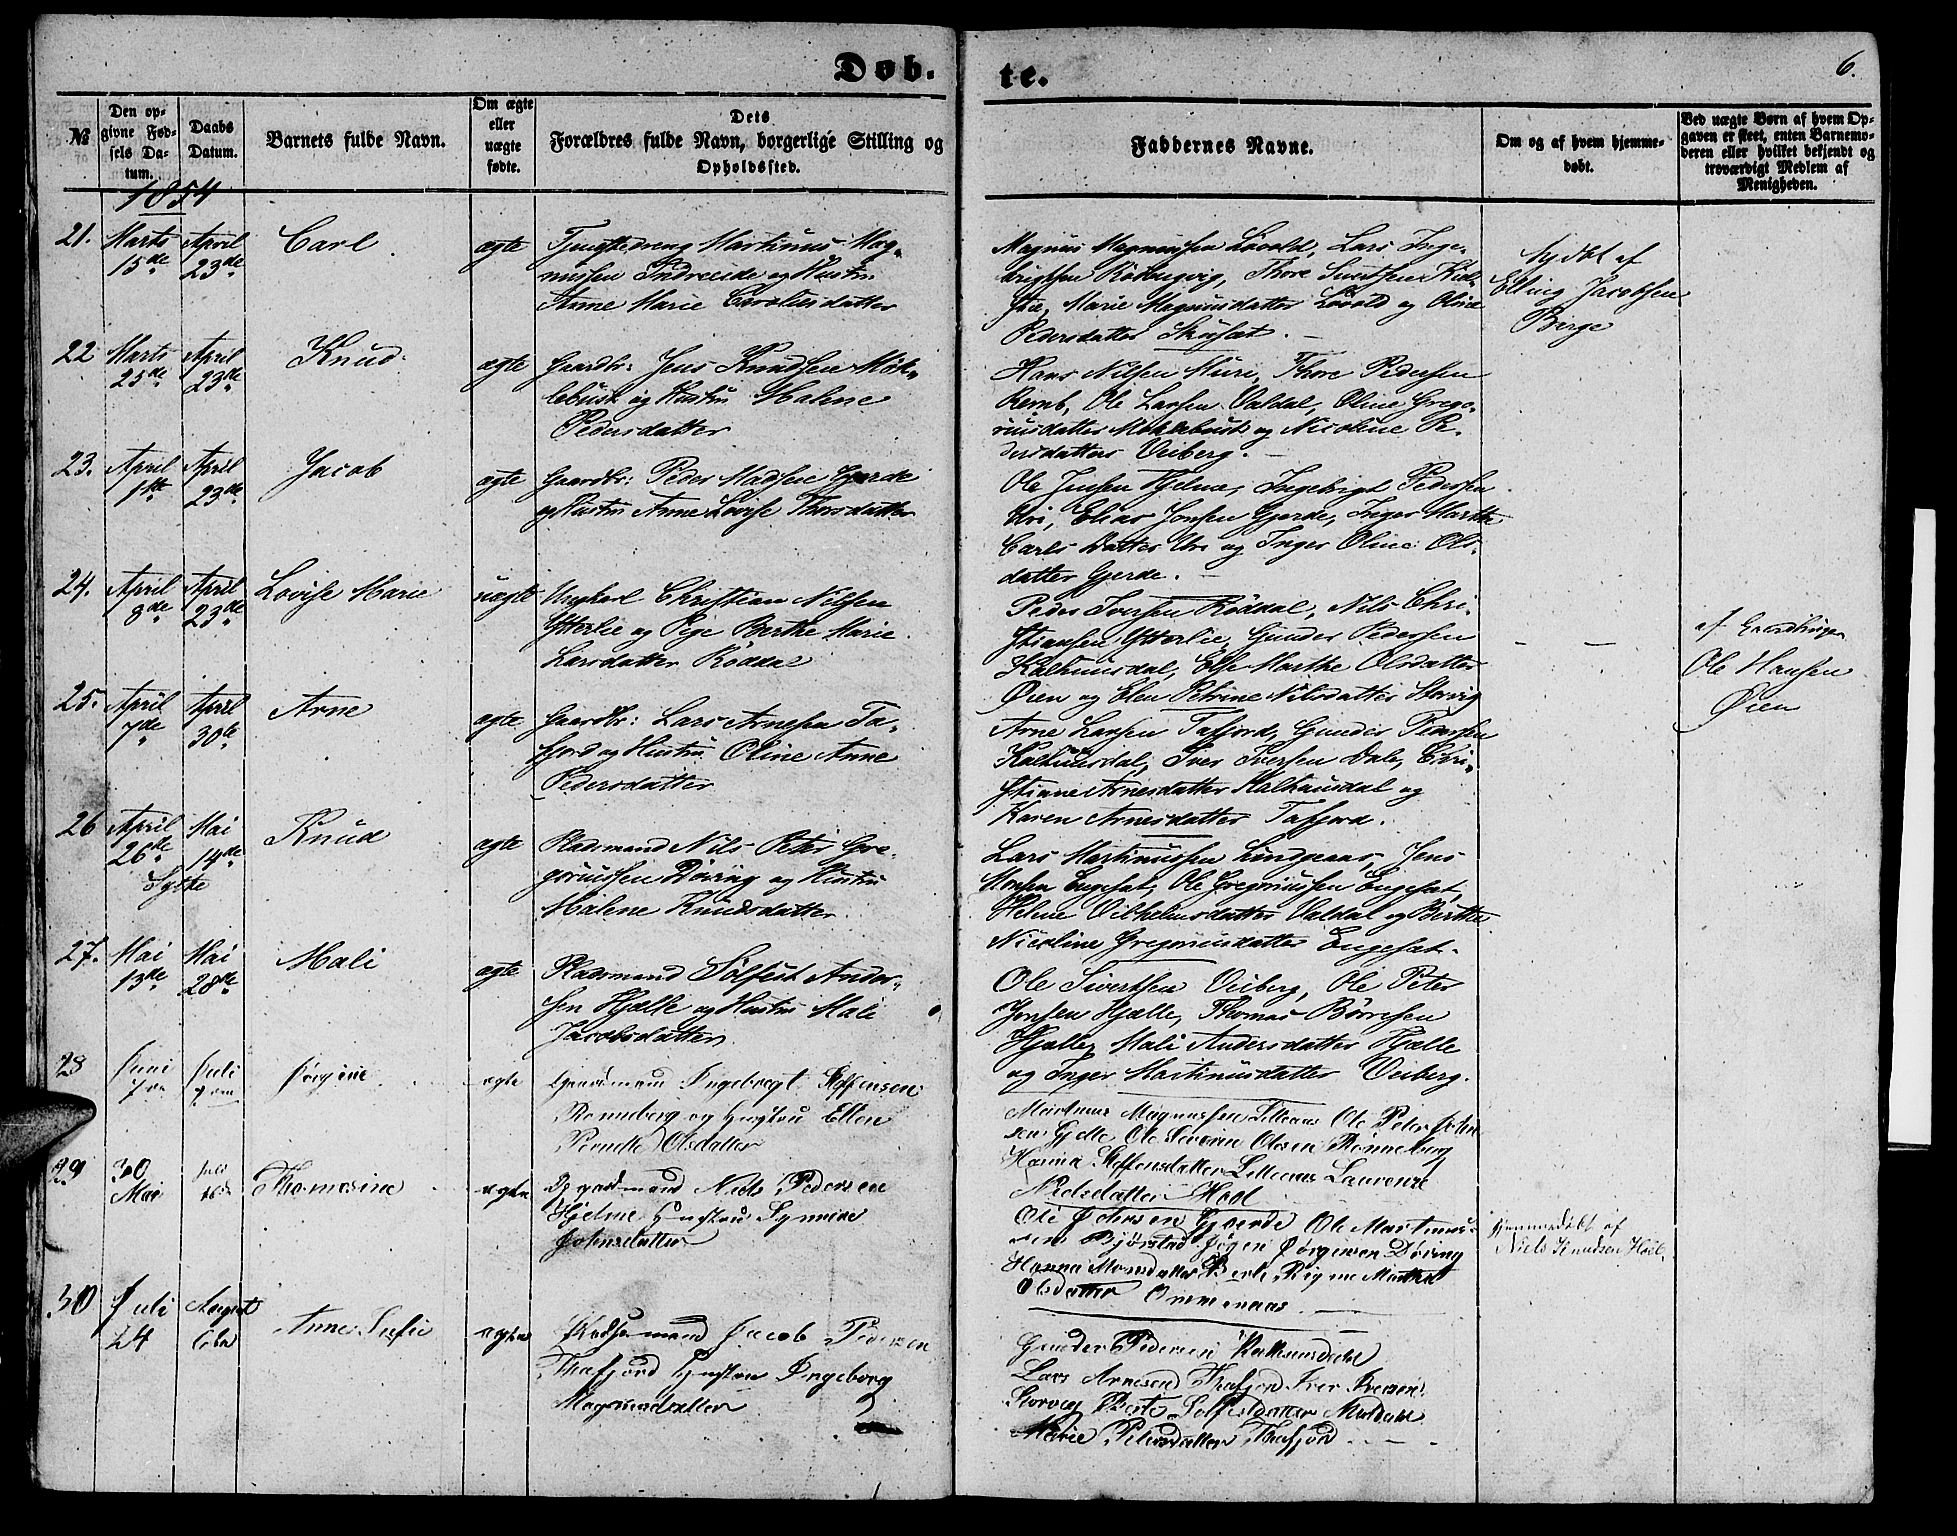 Døb. te. 6.
№ Den opgivne Fødsels Datum. Daabs Datum. Barnets fulde Navn. Om ægte eller uægte fødte. Dets Forældres fulde Navn, borgerlige Stilling og Opholdssted. Faddernes Navne. Om og af hvem hjemmedøbt. Ved uægte Børn af hvem Opgaven er skeet, enten Barnemoderen eller hvilket bekjendt og troværdigt Medlem af Menigheden.
1854
21. Marts 15de April 23de Carl ægte
Martinus Mag-
nussen Indreeide og Hustru
Anne Marie Carolusdatter
Magnus Magnussen Løvold, Lars Inge-
brigtsen, Thore
Marie Magnusdatter Løvold og Oline
Pedersdatter
af
Elling Jacobsen
Birge
22 Marts 25de April 23de Knud ægte
Gaardbr: Jens Knudsen Møk-
lebust og Hustru Malene
Pedersdatter
Hans Nilsen Muri, Thore Pedersen
Remb, Ole Larsen Valdal, Oline Grego-
riusdatter Møklebust og Nicoline Pe-
dersdatter Veiberg.
23. April 1ste April 23de Jacob ægte
Gaardbr: Peder Madsen Gjerde
og Hustru Anne Lovise Thorsdatter
Ole Jensen Hjelme, Ingebrigt Pedersen
Uri, Elias Jonsen Gjerde, Inger Marthe
Carlsdatter Uri og Inger Oline Ols-
datter Gjerde.
24. April 8de April 23de Lovise Marie uægte
Ungkarl Christian Nilsen
Ytterlie og Pige Berthe Marie
Larsdatter Røddal
Peder Iversen Røddal, Nils Chri-
stiansen Ytterlie, Gunder Pedersen
Kalhusdal, Else Marthe Olsdatter
Øien og Elen Petrine Nilsdatter Storvig
af
Ole Hansen
Øien
25. April 7de April 30te Arne ægte
Gaardbr: Lars Arnesen Ta-
fjord og Hustru Oline Anne
Pedersdatter
Arne Larsen Tafjord, Gunder Pedersen
Kalhusdal, Iver Iversen Dale, Chri-
stiane Arnesdatter Kalhusdal og
Karen Arnesdatter Tafjord.
26 April 26de Mai 14de Knud ægte
Sylte
Pladsmand Nils Peter Gre-
goriussen Døving og Hustru
Malene Knudsdatter
Lars Martinussen Lingaas, Jens
Monsen Engeset, Ole Gregoriussen Engeset,
Helene Vilhelmsdatter Valdal og Birthe
Nicoline Gregoriusdatter Engeset.
27. Mai 13de Mai 28de Mali ægte
Pladsmand Sølfest Ander-
sen Hjelle og Hustru Mali
Jacobsdatter
Ole Sivertsen Veiberg, Ole Peter
Jonsen Hjelle, Thomas Børresen
Hjelle, Mali Andersdatter Hjelle
og Inger Martinusdatter Veiberg.
28 Juni 7de Juli Jørgine ægte
Gaardmand Ingebregt Steffensen
Rønneberg og Hustru Ellen
Pernelle Olsdatter
Martinus Magnussen Lilleaas Ole Peter John-
sen Gjelle Ole Severin Olsen Rønneberg
Hanna Steffensdatter Lilleaas Laurenze
Nielsdatter Hoel
29 30 Mai Juli 16de Thomasine ægte
Niels Pedersen
Hjelme Hustru Synnive
Johnsdatter
Ole Gjærde Ole Martinus-
sen Bjørstad Jørgen Jørgensen Døving
Hanna Monsdatter
Olsdatter Ommenaas
Hjemmedøbt af
Niels Knudsen Hoel
30 Juli 24 August 6te Anne Sufie ægte
Jacob Pedersen
Thafjord Hustru Ingeborg
Magnusdatter
Gunder Pedersen Kalhusdahl
Lars Arnesen Thafjord Iver Iversen
Storvig Berte Solfestdatter Muldahl
Marie Petersdatter Thafjord